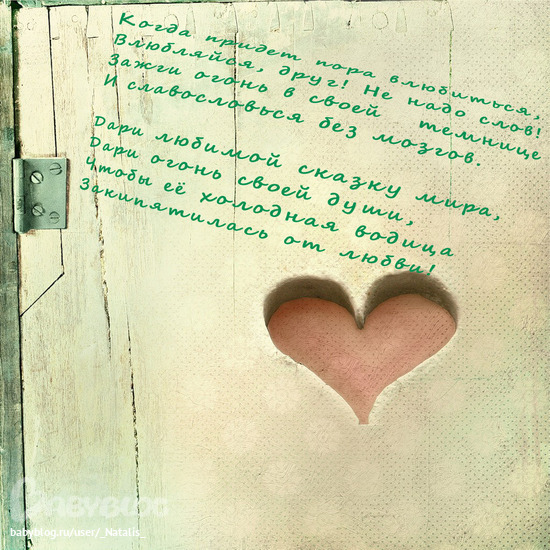 Когда придет пора влюбиться,
Влюбляйся, друг! Не надо слов!
Зажги огонь в своей темнице
И славословься без мозгов.
Дари любимой сказку мира,
Дари огонь своей души,
Чтобы её холодная водица
Закипятилась от любви!
BABYBLOG
babyblog.ru/user/_Natalis_